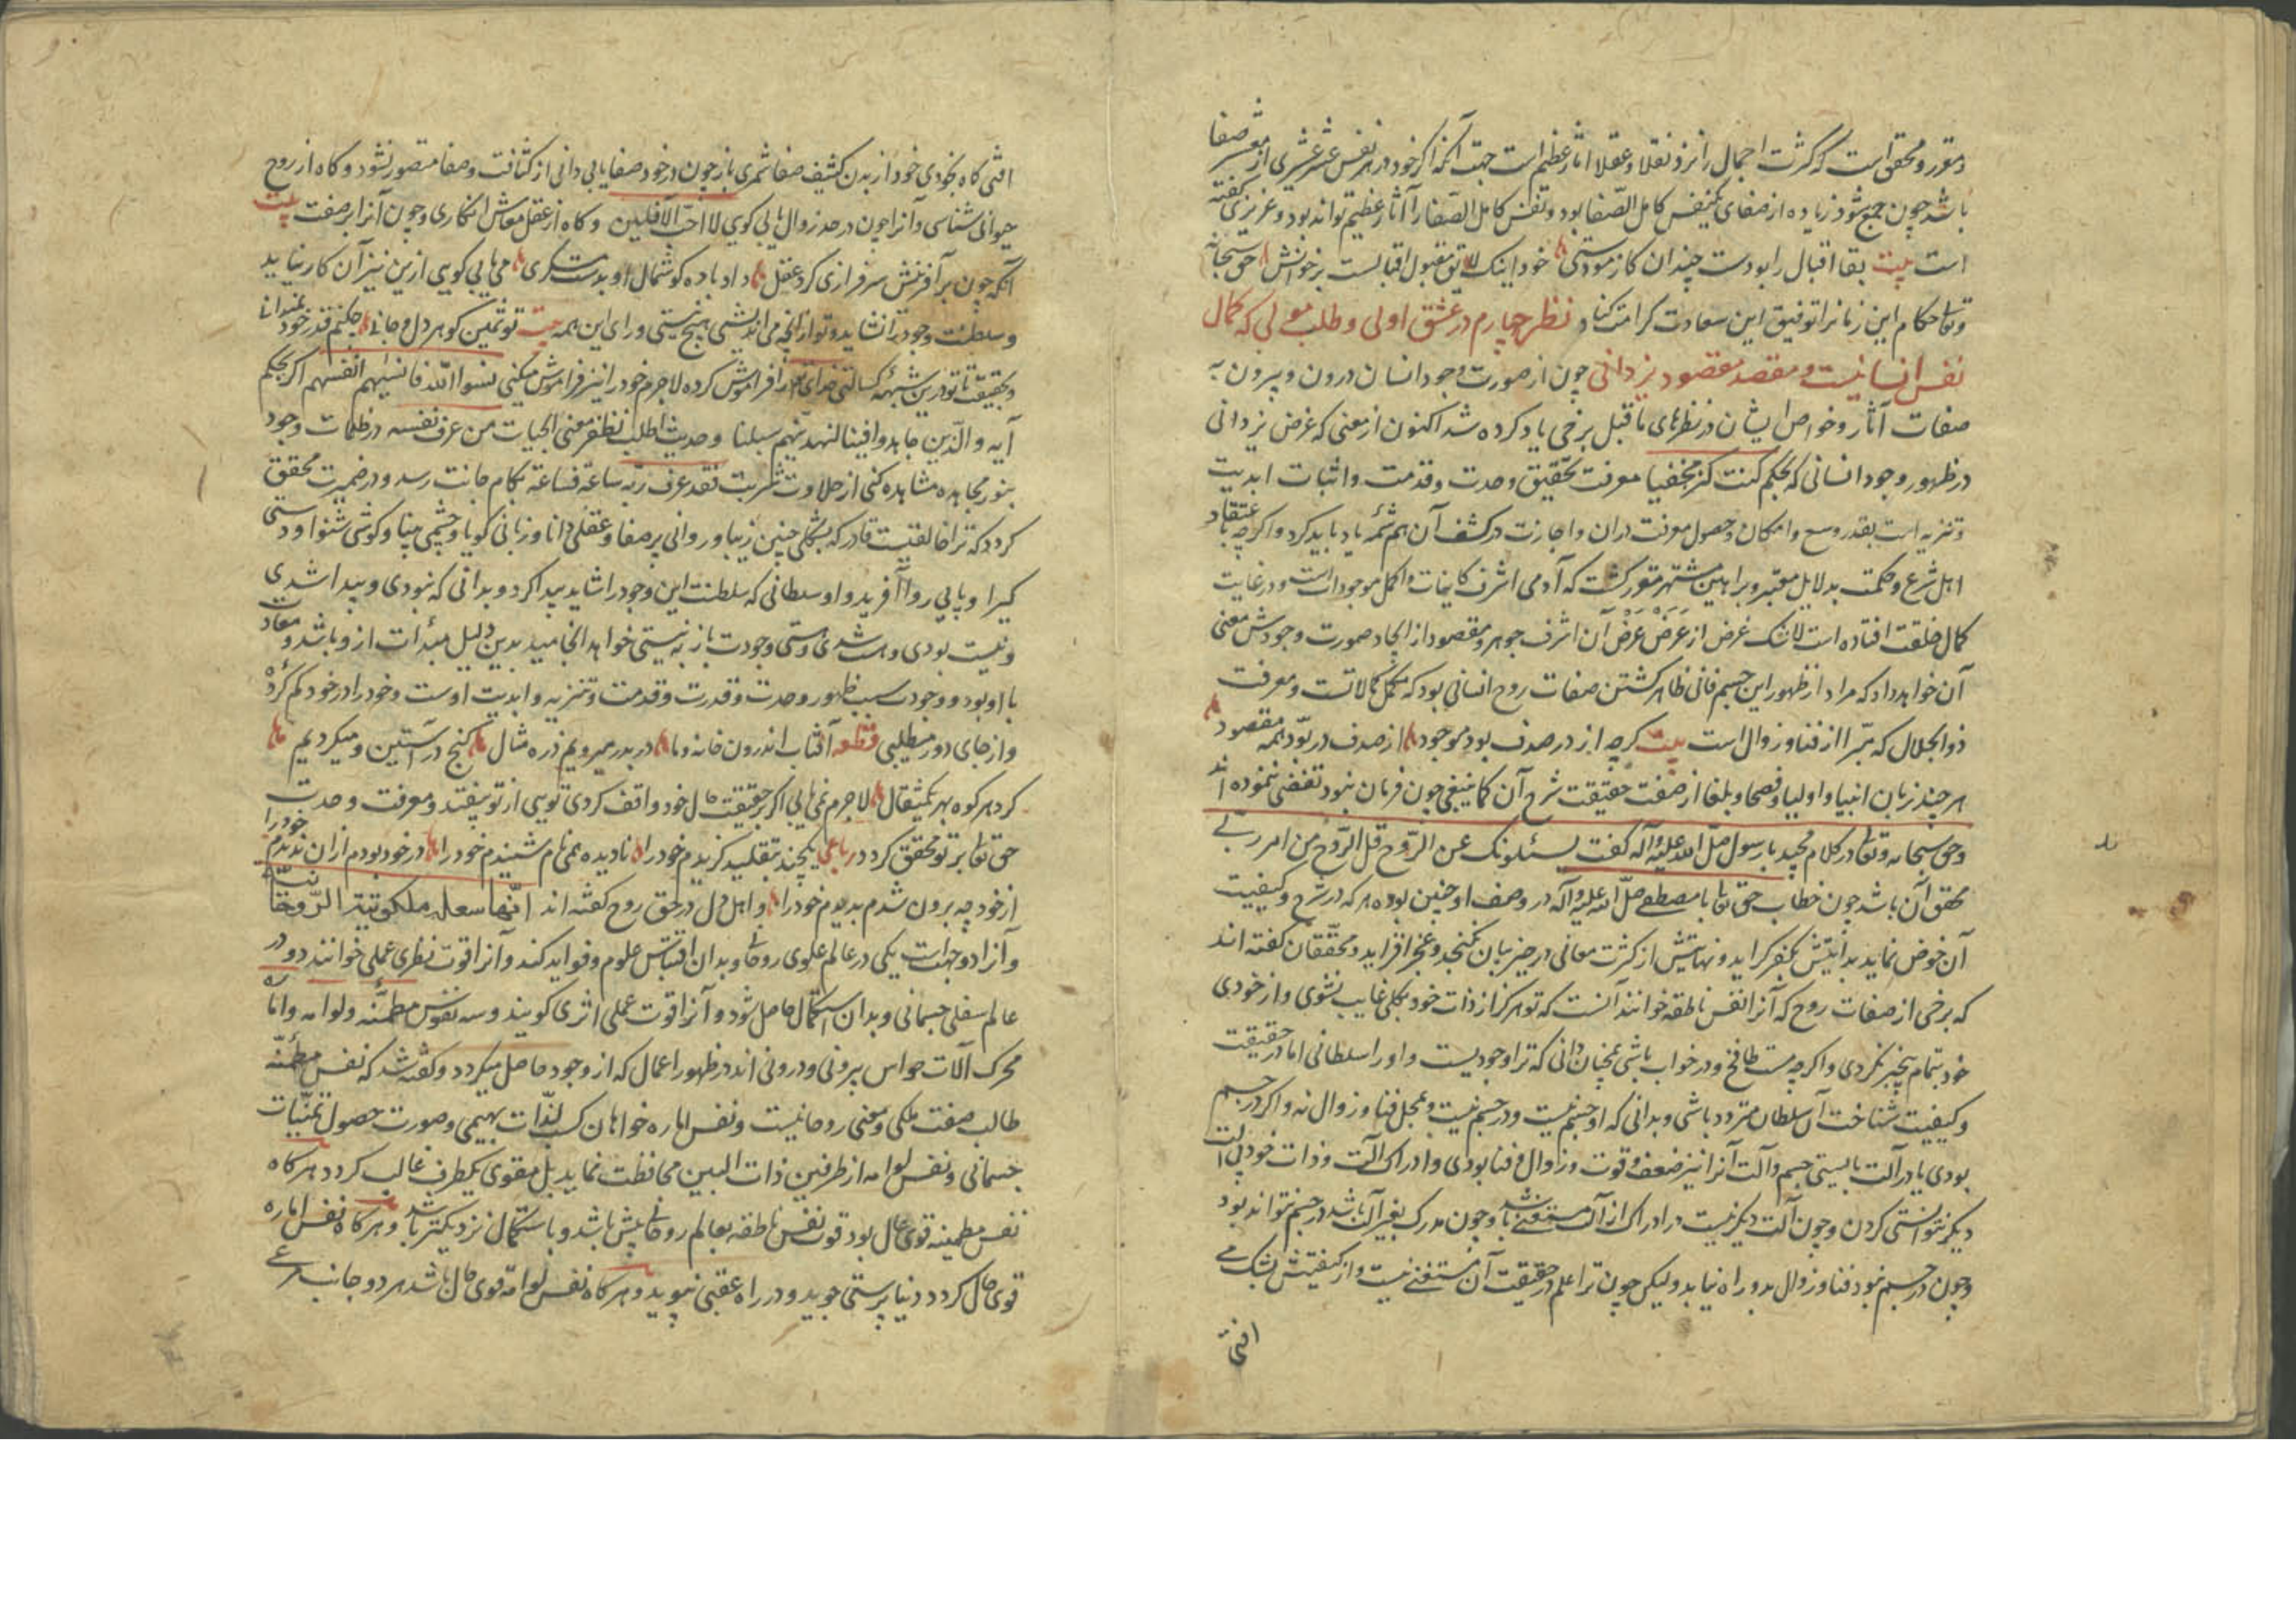 و مقرر و محقق است که کثرت اجمال را نزد نقلا و عقلا اثار عظیم است جهت آنکه اگر خود در هر نفس عشر عشیری از صفا
باشد چون جمع شود زیاده از صفای یکنفس کامل الصفا بود و نفس کامل الصفا را آثار عظیم تواند بود و عزیزی گفته
است بیت بقا اقبال را بودست چندان کازمودستی خود اینک لایق مقبول اقبالست برخوانش حق سبحانه
و تعالی حکام این زمانرا توفیق این سعادت کرامت کناد نظر چهارم در عشق اولی و طلب مولی که کمال
نفس انسانیست و مقصد مقصود یزدانی چون از صورت وجود انسان درون و بیرون به
صفات آثار و خواص ایشان در نظرهای ما قبل برخی یاد کرده شد اکنون از معنی که غرض یزدانی
در ظهور وجود انسانی که بحکم کنت کنزا مخفیا معرفت تحقیق وحدت و قدمت و اثبات ابدیت
و تنزیه است بقدر وسع و امکان و حصول معرفت دران و اجازت در کشف آن هم شمه یاد باید کرد و اگرچه باعتقاد
اهل شرع و حکمت بدلایل معتبر و براهین مشتهر مقرر گشت که آدمی اشرف کاینات و اکمل موجوداتست و در غایت
کمال خلقت افتاده است لاشک غرض از عرض عرض آن اشرف جوهر و مقصود از ایجاد صورت وجودش معنی
آن خواهد داد که مراد از ظهور این جسم فانی ظاهر گشتن صفات روح انسانی بود که مکمل کمالاتست و معرفت
ذو الجلال که مبرا از فنا و زوال است بیت گرچه از در صدف بود موجود از صدف در بود همه مقصود
هر چند زبان انبیا و اولیا و فصحا و بلغا از صفت حقیقت شرح آن کما ینبغی چون فرمان نبود تفضی ننموده اند
و حق سبحانه و تعالی در کلام مجید با رسول صلی الله علیه و آله گفت یسئلونک عن الروح قل الروح من امر ربی
محقق آن باشد چون خطاب حق تعالی با مصطفی صلی الله علیه و آله در وصف او چنین بوده هر که در شرح و کیفیت
آن خوض نماید بدایتش بکفر گراید و نهایتش از کثرت معانی در حیز بیان نگنجد و عجز افزاید و محققان گفته اند
که برخی از صفات روح که آنرا نفس ناطقه خوانند آنست که تو هرگز از ذات خود بکلی غایب نشوی و از خودی
خود بتمام بیخبر نگردی و اگرچه مست طافح و در خواب باشی همچنان دانی که ترا وجودیست و او را سلطانی اما در حقیقت
و کیفیت شناخت آن سلطان متردد باشی و بدانی که او جسم نیست و در جسم نیست و محل فنا و زوال نه و اگر در جسم
بودی یا در آلت بایستی جسم و آلت آنرا نیز ضعف و قوت و زوال و فنا بودی و ادراک آلت و ذات خود بی آلت
دیگر نتوانستی کردن و چون آلت دیگر نیست در ادراک از آلت مستغنی باشد و چون مدرک بغیر آلت باشد در جسم نتواند بود
و چون در جسم نبود فنا و زوال بدو راه نیابد ولیکن چون ترا علم در حقیقت آن مستغنی نیست و از کیفیتش بشک می
افتی
افتی گاه بخودی خود از بدن کثیف صفا شمری باز چون در خود صفا یابی دانی از کثافت و صفا متصور نشود و گاه از روح
حیوانی شناسی و آنرا چون در حد زوال یابی گویی لا احب الآفلین و گاه از عقل معاش انگاری و چون آنرا بر صفت بیت
آنکه چون بر آفرینش سرفرازی کرد عقل داد باده گوشمال او بدست مسکری می یابی گویی ازین نیز آن کار نیاید
و سلطنت وجود ترا نشاید و تو از آنچه می اندیشی هیچ نیستی ورای این همه بیت تو ثمین گوهر دل و جانی چکنم قدر خود نمیدانی
و بحقیقت تا تو درین شبهه کسالتی خدای را فراموش کرده لاجرم خود را نیز فراموش میکنی نسوا الله فانسیهم انفسهم اگر بحکم
آیه و الذین جاهدوا فینا لنهدینهم سبلنا و حدیث اطلب تظفر معنی الحیات من عرف نفسه در ظلمات وجود
بنور مجاهده مشاهده کنی از حلاوت شربت فقد عرف ربه ساعة فساعة بکام جانت رسد و در ضمیرت محقق
گردد که ترا خالقیست قادر که بشکلی چنین زیبا و روانی پر صفا و عقلی دانا و زبانی گویا و چشمی بینا و گوشی شنوا و دستی
گیرا و پایی روا آفرید و او سلطانی که سلطنت این وجود را شاید پیدا کرد و بدانی که نبودی و پیدا شدی
و نیست بودی و هست شدی و هستی وجودت باز به نیستی خواهد انجامید بدین دلیل مبدات ازو باشد و معاد
با او بود و وجودت سبب ظهور وحدت و قدرت و قدمت و تنزیه و ابدیت اوست و خود را در خود گم کرده
و از جای دور میطلبی قطعه آفتاب اندرون خانه و ما در بدر میرویم ذره مثال گنج در آستین و میگردیم
گرد هر کوه بهر یکمثقال لاجرم نمی یابی اگر بر حقیقت حال خود واقف گردی تویی از تو بیفتد و معرفت وحدت
حق تعالی بر تو محقق گردد رباعی یکچند بتقلید گزیدم خود را نادیده همی نام شنیدم خود را در خود بودم ازان ندیدم خود را
از خود چو برون شدم بدیدم خود را و اهل دل در حق روح گفته اند
و آنرا دو جهت است یکی در عالم علوی روحانی و بدان اقتباس علوم و فواید کند و آنرا قوت نظری عملی خوانند دو در
عالم سفلی جسمانی و بدان استکمال حاصل شود و آنرا قوت عملی اثری گویند و سه نفوس مطمئنه و لوامه و اماره
محرک آلات حواس بیرونی و درونی اند در ظهور اعمال که از وجود حاصل میگردد و گفته شد که نفس مطمئنه
طالب صفت ملکی و معنی روحانیست و نفس اماره خواهان کسب لذات بهیمی و صورت حصول تمنیات
جسمانی و نفس لوامه از طرفین ذات البین محافظت نماید بل مقوی یکطرف غالب گردد هر گاه
نفس مطمینه قوی حال بود قوت نفس ناطقه بعالم روحانی بیش باشد و با ستکمال نزدیکتر باشد و هر گاه نفس اماره
قوی حال گردد دنیا پرستی جوید و در راه عقبی نپوید و هر گاه نفس لوامه قوی حال باشد هر دو جانب مرعی